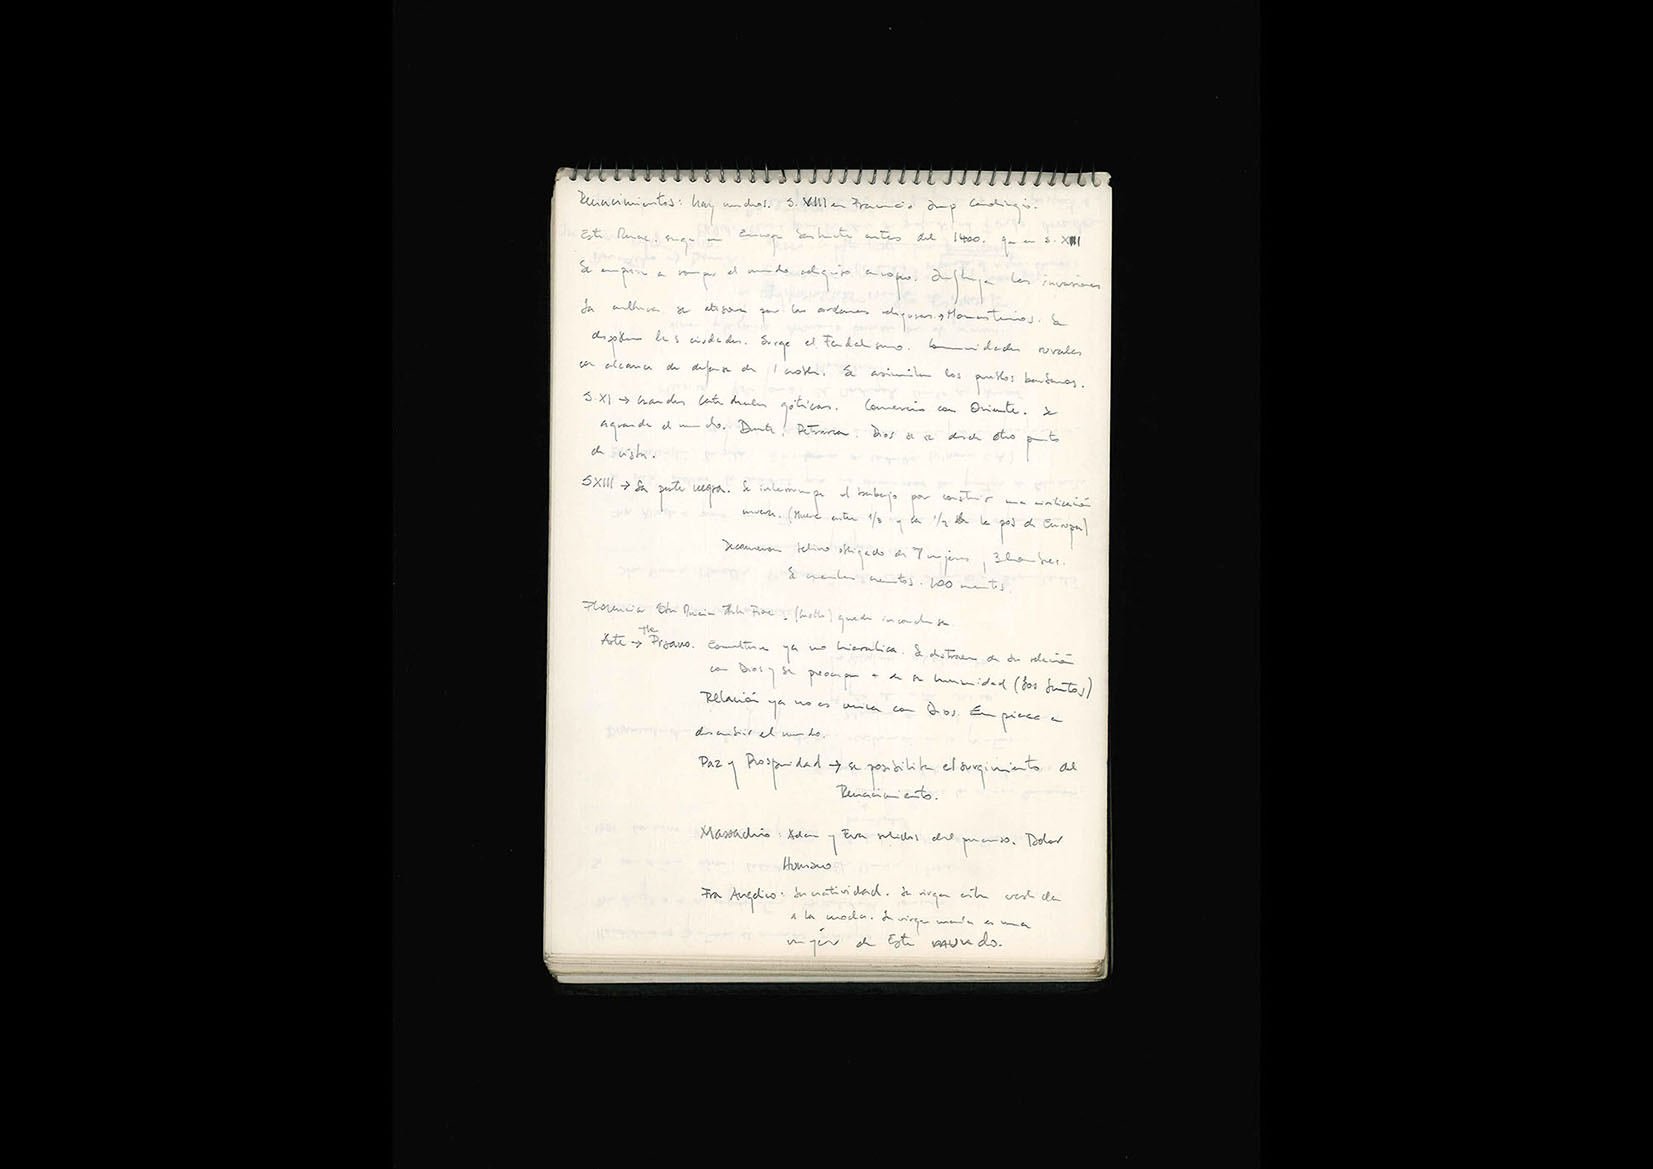 Renacimientos: hay muchos. S. VIII en Francia Imp Carolingio.
Este Renac. surge en Europa antes del 1400. ya en S. XIII
Se empieza a romper el mundo religioso europeo. Influyen las invasiones
La cultura se atesora por las ordenes religiosas → Monasterios. Se
las ciudades. Surge el Feudalismo. Comunidades rurales
con alcance de defensa de 1 castillo. Se asimilan los pueblos barbaros.
S. XI → Grandes catedrales góticas. Comercio con Oriente. Se
agranda el mundo. Dante, Petrarca. Dios se ve desde otro punto
de vista.
SXIII → La peste negra. Se interrumpe el trabajo por construir una civilización
nueva. (Muere entre 1/3 y la 1/2 de la pob de Europa)
Decameron retiro obligado de 7 mujeres, 3 hombres.
Se cuentan cuentos. 100 cuentos.
Florencia queda inconclusa.
Arte → Pisano. Escultura ya no hieratica. Se distraen de su relación
con Dios y se preocupa + de su humanidad (Los Santos)
Relación ya no es unica con Dios. Empieza a
descubrir el mundo.
Paz y Prosperidad → se posibilita el surgimiento del
Renacimiento.
Massachio: Adan y Eva salidos del paraiso. Dolor
Humano
Fra Angelico: La natividad. La virgen esta vestida
a la moda. La virgen maria es una
mujer de Este mundo.